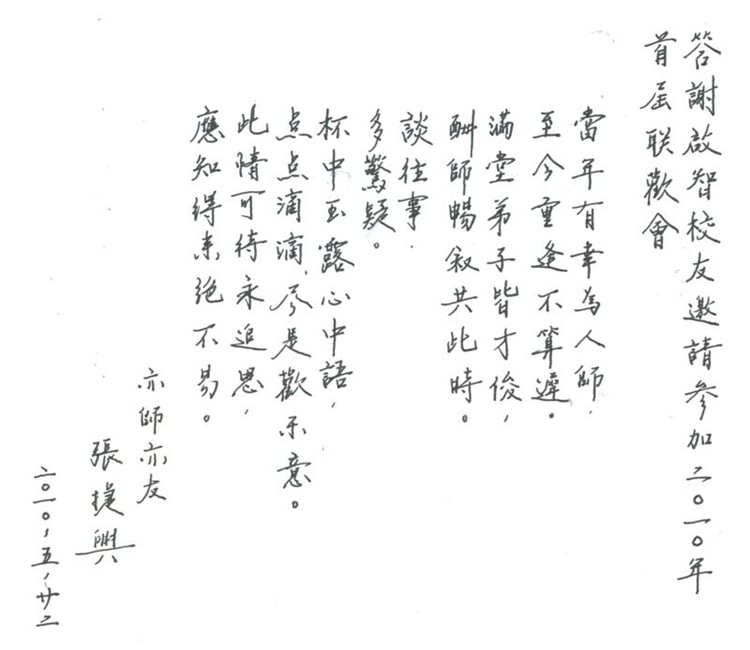 答謝啟智校友邀請參加二〇一〇年
首屆联歡會
當年有幸為人師，
至今重逢不算遲。
滿堂弟子皆才俊，
酬師暢叙共此時。
談往事，
多驚疑。
杯中玉露心中語，
点点滴滴，尽是歡乐意。
此情可待永追思，
應知得来绝不易。
亦師亦友
張捷興
二〇一〇，五，廿二